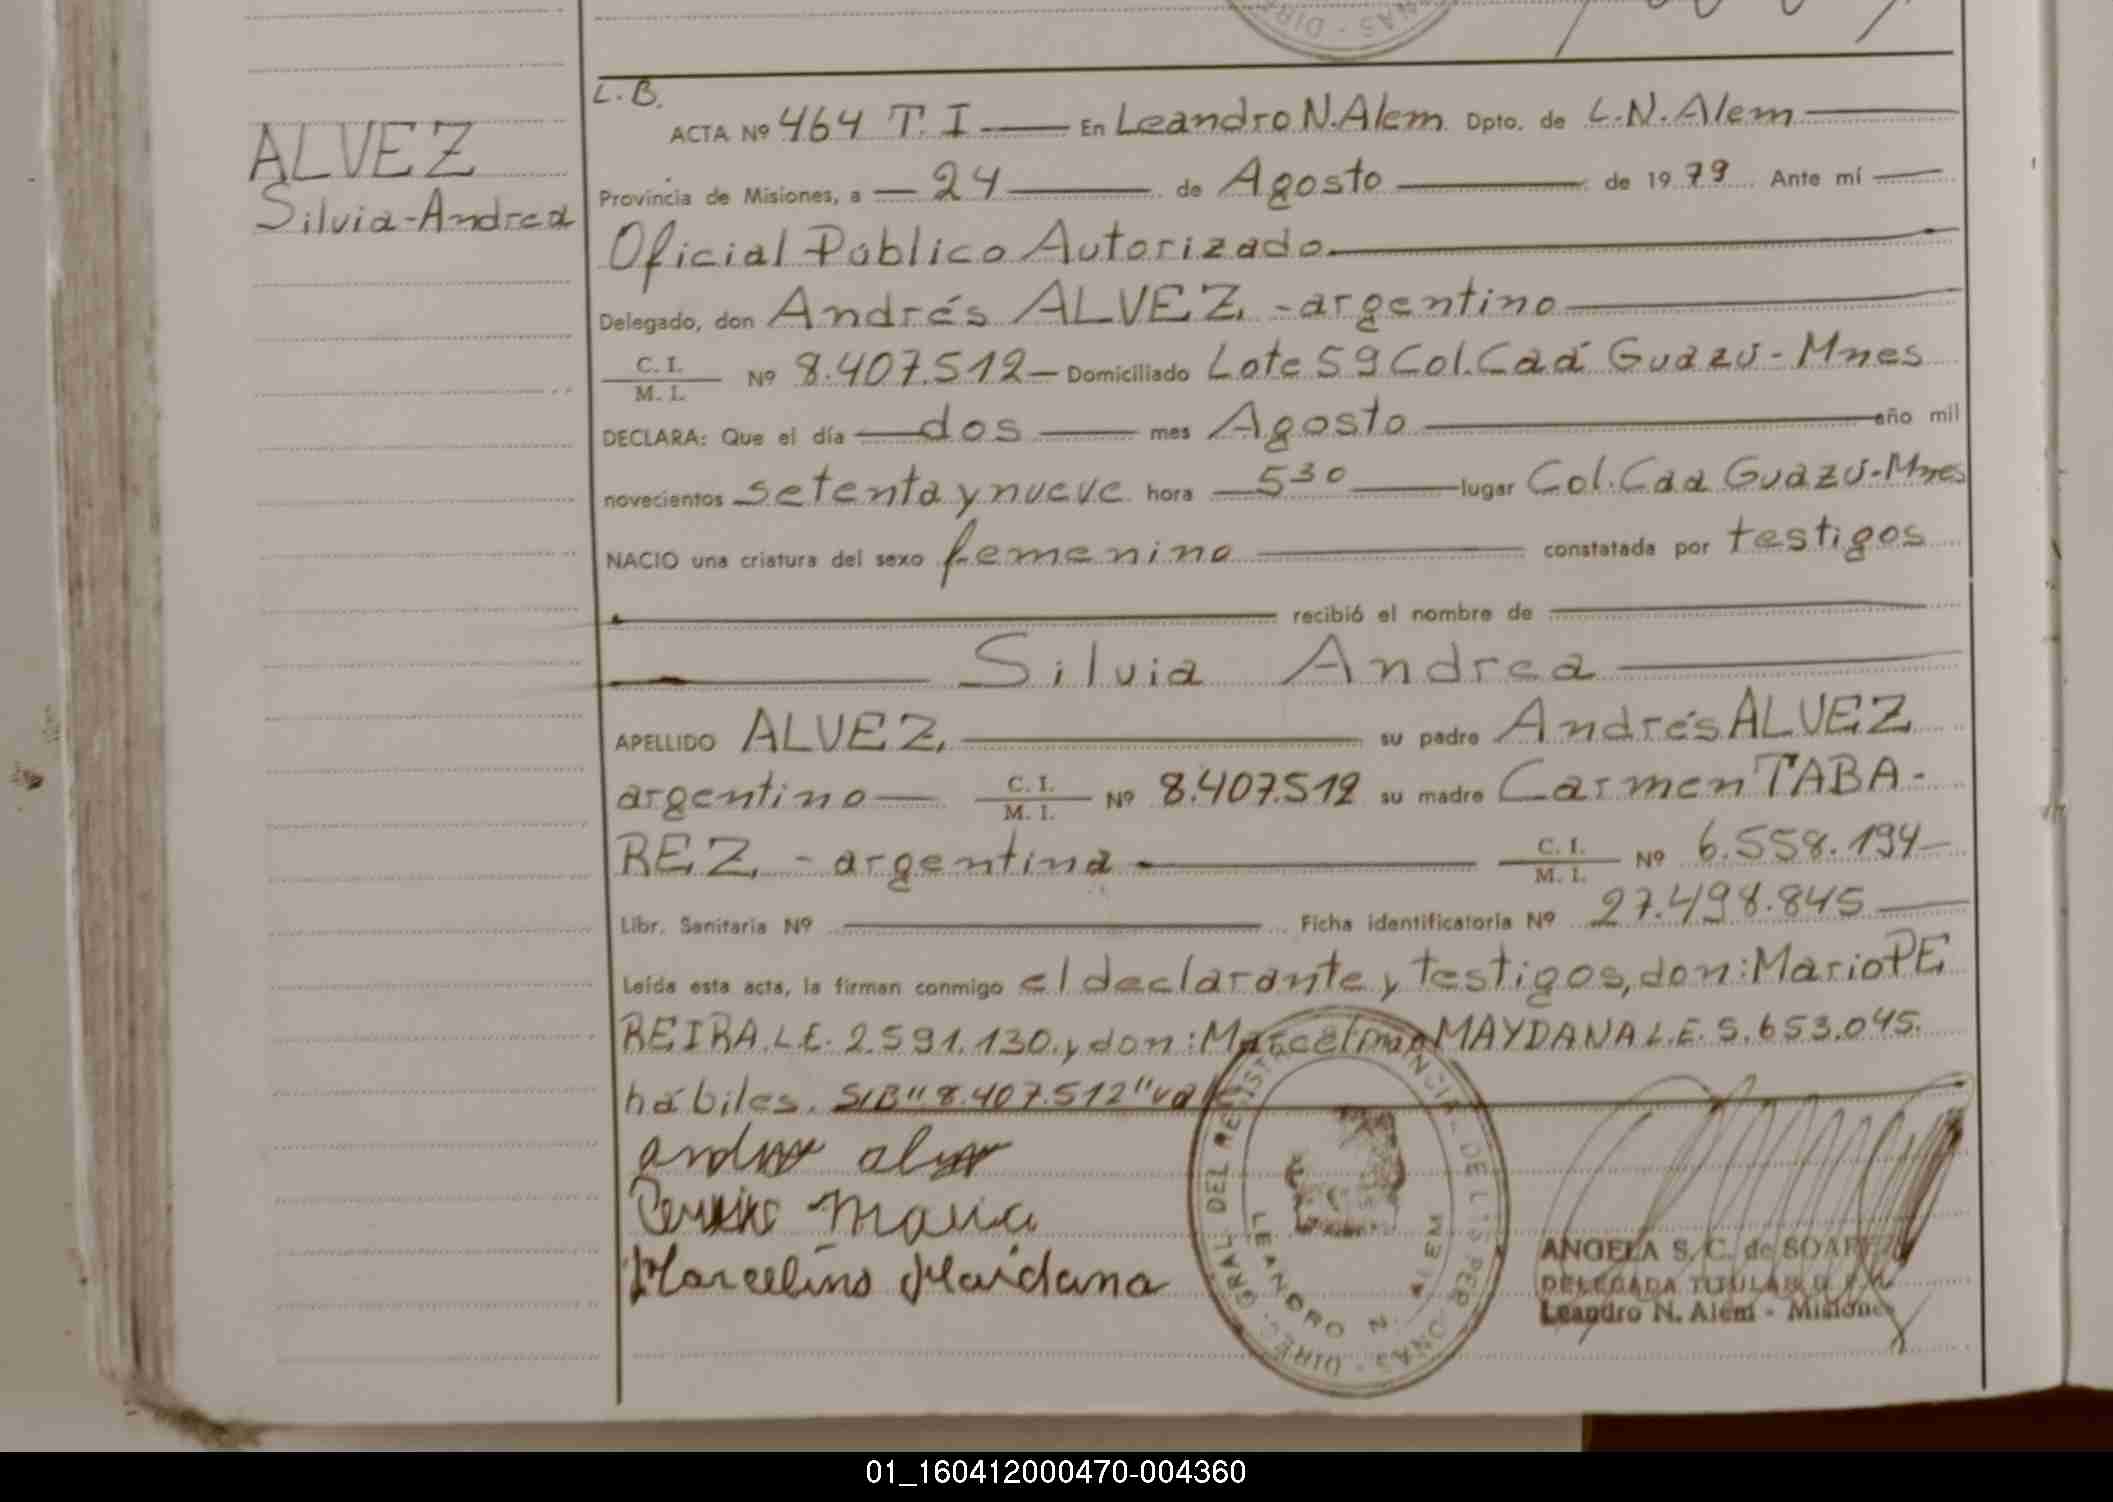 L.B.
ACTA Nº 464 T. I — En Leandro N. Alem Dpto. de L.N. Alem —
ALVEZ
Silvia-Andrea
Provincia de Misiones, a — 24 — de Agosto — de 1979 Ante mí —
Oficial Público Autorizado —
Delegado, don Andrés ALVEZ, - argentino —
C. I.
M. I. Nº 8.407.512 — Domiciliado Lote 59 Col. Caá Guazú - Mnes
DECLARA: Que el día — dos — mes Agosto — año mil
novecientos setenta y nueve hora — 5 30 — lugar Col. Caa Guazú - Mnes
NACIO una criatura del sexo femenino — constatada por testigos
— recibió el nombre de —
— Silvia Andrea —
APELLIDO ALVEZ, — su padre Andrés ALVEZ
argentino — C. I.
M. I. Nº 8.407.512 su madre Carmen TABA-
REZ, - argentina — C. I.
M. I. Nº 6.558.194 —
Libr. Sanitaria Nº — Ficha identificatoria Nº 27.498.845 —
Leída esta acta, la firman conmigo el declarante y testigos, don: Mario PE
REIRA. L.E. 2.591.130. y don: Marcelino MAYDANA L.E. 5.653.045.
hábiles. S/B "8.407.512" vale
Marcelino Maidana
DIREC. GRAL. DEL REGISTRO PROVINCIAL DE LAS PERSONAS
LEANDRO N. ALEM
ANGELA S. C. de SOAREZ
DELEGADA TITULAR
Leandro N. Alem - Misiones
01_160412000470-004360